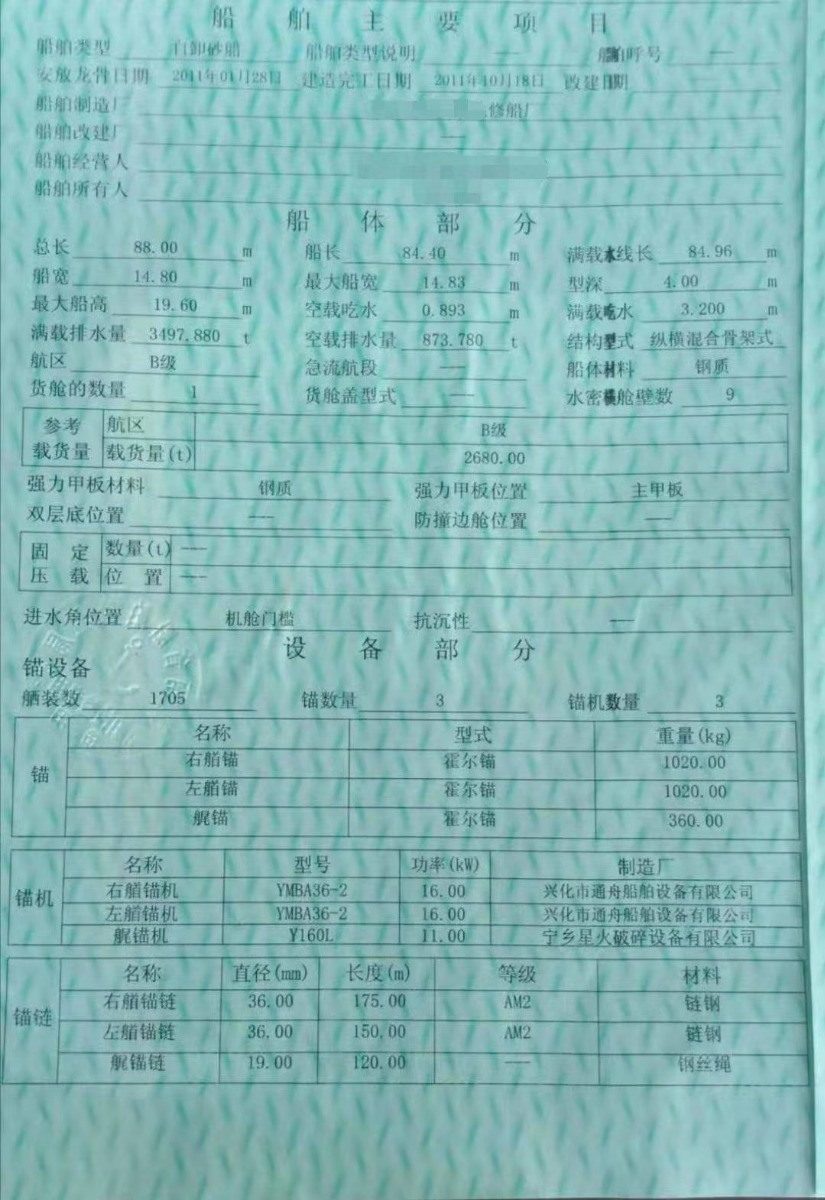 船舶主要项目
船舶类型 自卸砂船 船舶类型说明 — 船舶呼号 —
安放龙骨日期 2011年01月28日 建造完工日期 2011年10月18日 改建日期
船舶制造厂 修船厂
船舶改建厂 —
船舶经营人
船舶所有人
船体部分
总长 88.00 m 船长 84.40 m 满载水线长 84.96 m
船宽 14.80 m 最大船宽 14.83 m 型深 4.00 m
最大船高 19.60 m 空载吃水 0.893 m 满载吃水 3.200 m
满载排水量 3497.880 t 空载排水量 873.780 t 结构型式 纵横混合骨架式
航区 B级 急流航段 —— 船体材料 钢质
货舱的数量 1 货舱盖型式 —— 水密横舱壁数 9
参考载货量 航区 B级
载货量(t) 2680.00
强力甲板材料 钢质 强力甲板位置 主甲板
双层底位置 —— 防撞边舱位置 ——
固定压载 数量(t) ——
位置 ——
进水角位置 机舱门槛 抗沉性 ——
设备部分
锚设备
舾装数 1705 锚数量 3 锚机数量 3
锚 名称 型式 重量(kg)
右艏锚 霍尔锚 1020.00
左艏锚 霍尔锚 1020.00
艉锚 霍尔锚 360.00
锚机 名称 型号 功率(kW) 制造厂
右艏锚机 YMBA36-2 16.00 兴化市通舟船舶设备有限公司
左艏锚机 YMBA36-2 16.00 兴化市通舟船舶设备有限公司
艉锚机 Y160L 11.00 宁乡星火破碎设备有限公司
锚链 名称 直径(mm) 长度(m) 等级 材料
右艏锚链 36.00 175.00 AM2 链钢
左艏锚链 36.00 150.00 AM2 链钢
艉锚链 19.00 120.00 —— 钢丝绳